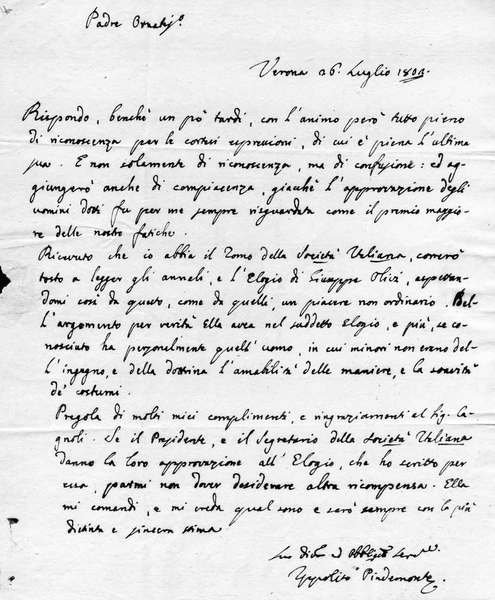 Padre Ornatiss.o
Verona 26. Luglio 1803.
Rispondo, benchè un pò tardi, con l'animo però tutto pieno
di riconoscenza per le cortesi espressioni, di cui è piena l'ultima
sua. E non solamente di riconoscenza, ma di confusione: ed ag-
giungerò anche di compiacenza, giacchè l'approvazione degli
uomini dotti fu per me sempre risguardata come il premio maggio-
re delle nostre fatiche.
Ricevuto che io abbia il Tomo della Società Italiana, correrò
tosto a legger gli annali, e l'Elogio di Giuseppe Olivi, aspettan-
domi così da questo, come da quelli, un piacere non ordinario. Bel-
l'argomento per verità Ella avea nel suddetto Elogio, e più, se co-
nosciuto ha personalmente quell'uomo, in cui minori non erano del-
l'ingegno, e della dottrina l'amabilità delle maniere, e la soavità
de' costumi.
Pregola di molti miei complimenti, e ringraziamenti al Sig. Ca-
gnoli. Se il Presidente, e il Segretario della Società Italiana
danno la loro approvazione all'Elogio, che ho scritto per
essa, parmi non dover desiderare altra ricompensa. Ella
mi comandi, e mi creda qual sono e sarò sempre con la più
distinta e sincera stima
Suo Div.mo ed Obblig.mo Serv.e
Ippolito Pindemonte.